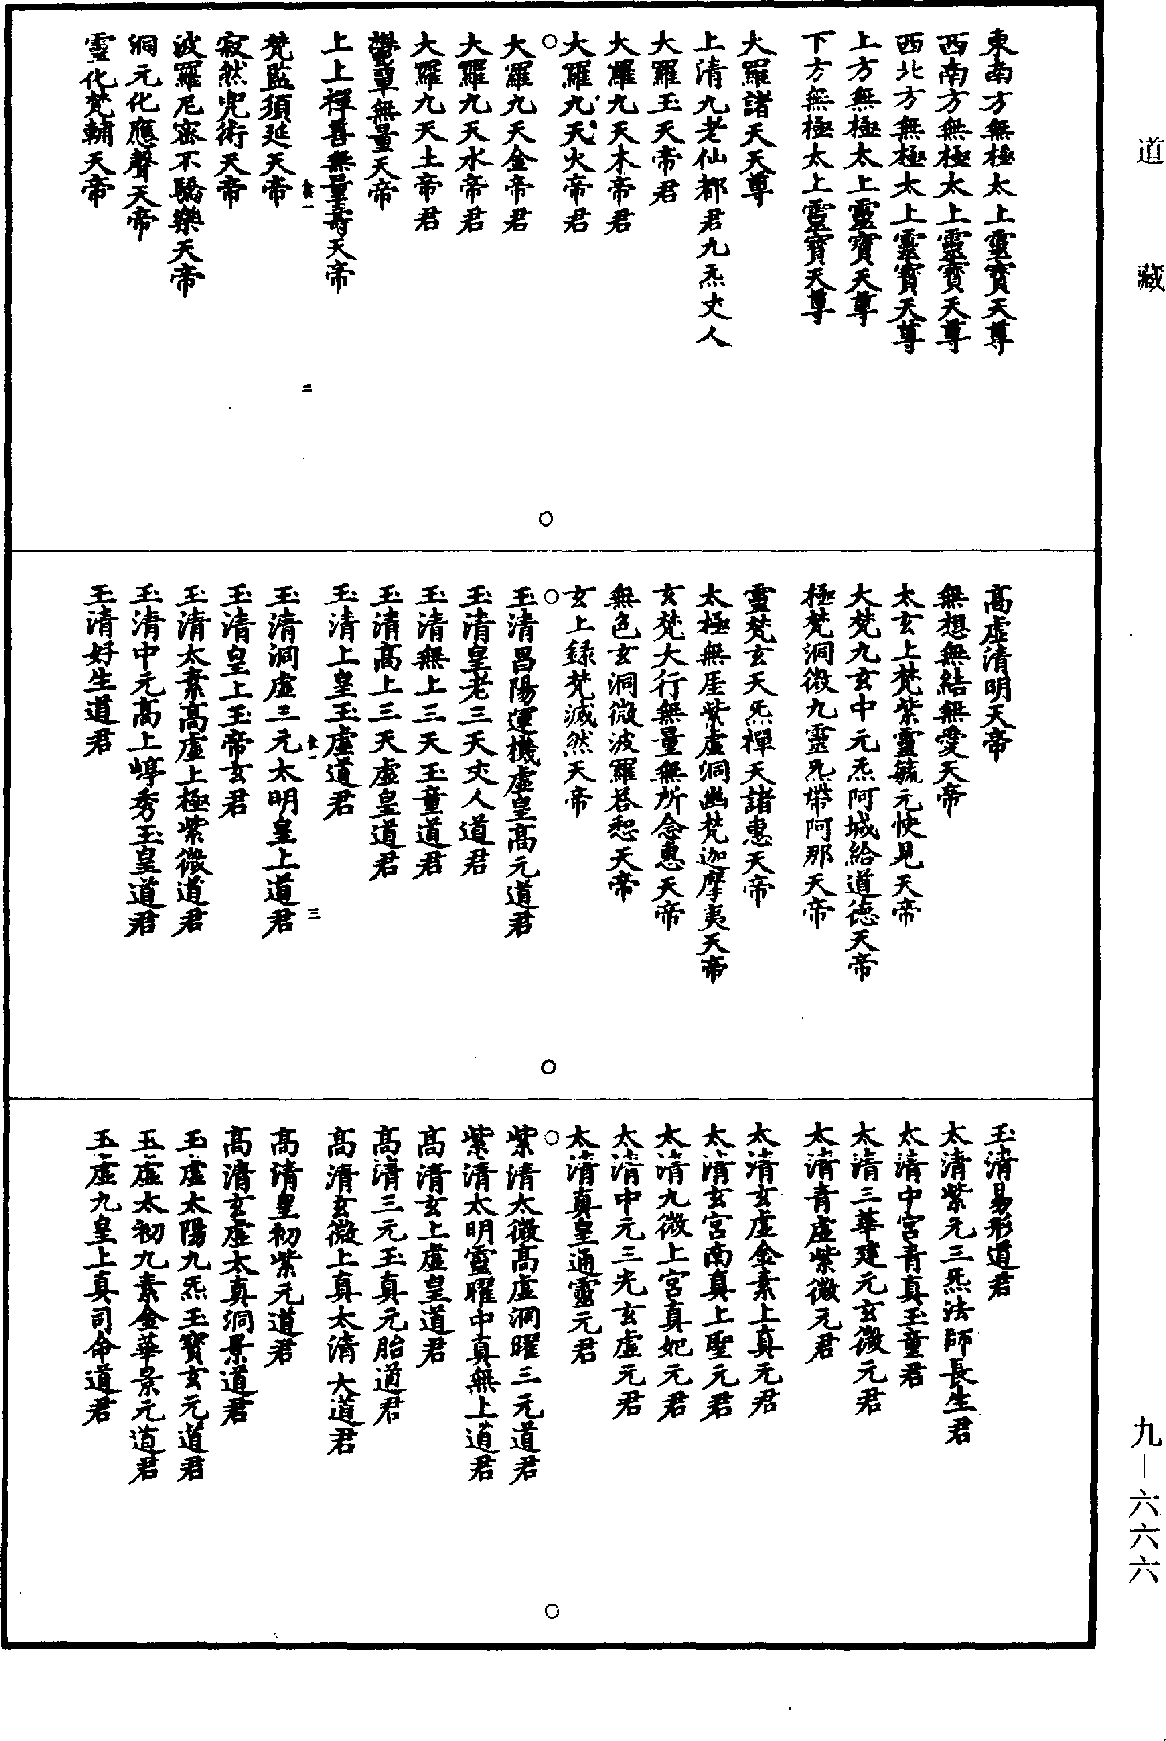 道藏
東南方無極太上靈寶天尊
西南方無極太上靈寶天尊
西北方無極太上靈寶天尊
上方無極太上靈寶天尊
下方無極太上靈寶天尊
大羅諸天天尊
上清九老仙都君九炁丈人
大羅玉天帝君
大羅九天木帝君
大羅九天火帝君
大羅九天金帝君
大羅九天水帝君
大羅九天土帝君
鬱單無量天帝
上上禪善無量壽天帝
梵監須延天帝
寂然兜術天帝
波羅尼密不驕樂天帝
洞元化應聲天帝
靈化梵輔天帝
高虛清明天帝
無想無結無愛天帝
太玄上梵紫靈毓元快見天帝
大梵九玄中元炁阿城給道德天帝
極梵洞微九靈炁帶阿那天帝
靈梵玄天炁禪天諸惠天帝
太極無崖紫虛洞幽梵迦摩夷天帝
玄梵大行無量無所念惠天帝
無色玄洞微波羅答恕天帝
玄上錄梵滅然天帝
玉清昌陽運機虛皇高元道君
玉清皇老三天丈人道君
玉清無上三天玉童道君
玉清高上三天虛皇道君
玉清上皇玉虛道君
玉清洞虛三元太明皇上道君
玉清皇上玉帝玄君
玉清太素高虛上極紫微道君
玉清中元高上崿秀玉皇道君
玉清好生道君
玉清易形道君
太清紫元三炁法師長生君
太清中宮青真玉童君
太清三華建元玄微元君
太清青虛紫微元君
太清玄虛金素上真元君
太清玄宮南真上聖元君
太清九微上宮真妃元君
太清中元三光玄虛元君
太清真皇通靈元君
紫清太微高虛洞曜三元道君
紫清太明靈曜中真無上道君
高清玄上虛皇道君
高清三元玉真元胎道君
高清玄微上真太清大道君
高清皇初紫元道君
高清玄虛太真洞景道君
玉虛太陽九炁玉寶玄元道君
玉虛太初九素金華景元道君
玉虛九皇上真司命道君
九—六六六